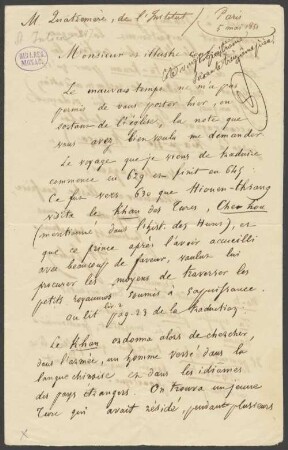 M Quatremère, de l'Institut
Paris
5 mai 1851
Monsieur et illustre
Le mauvais temps ne m'a pas
permis de vous porter hier, en
sortant de l'église, la note que
vous avez bien voulu me demander.
Le voyage que je viens de traduire
commence en 629 et finit en 645.
Ce fut vers 630 que Hiouen-thsang
visita le Khan des Turcs, Che-hou
(mentionné dans l'hist. des Huns), et
que ce prince après l'avoir accueilli
avec beaucoup de faveur, voulut lui
procurer les moyens de traverser les
petits royaumes soumis à sa puissance.
On lit pag. 23 de la traduction:
Le Khan ordonna alors de chercher,
dans l'armée, un homme versé dans la
langue chinoise et dans les idiomes
des pays étrangers. On trouva un jeune
Turc qui avait résidé, pendant plusieurs